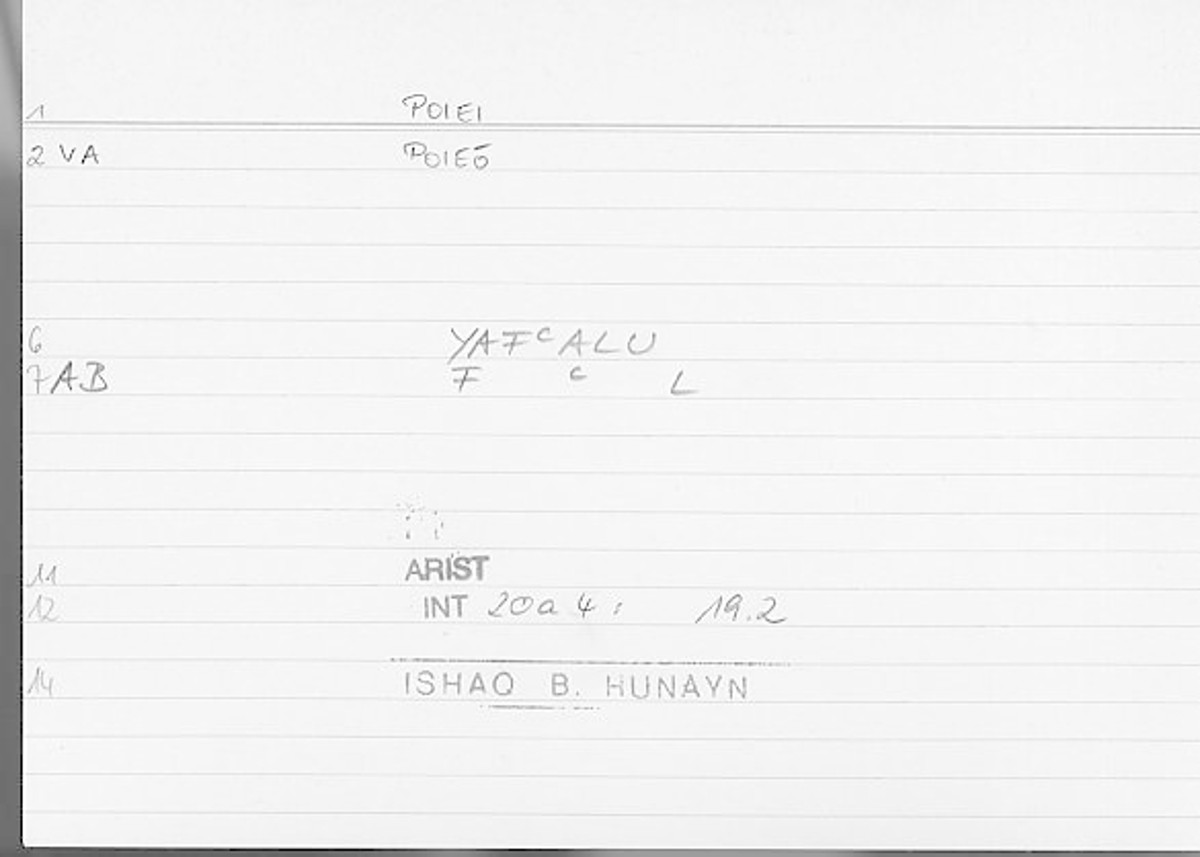 1 POIEI
2 VA POIEŌ
6 YAFᶜALU
7AB F ᶜ L
11 ARIST
12 INT 20a 4: 19.2
14 ISHAQ B. HUNAYN